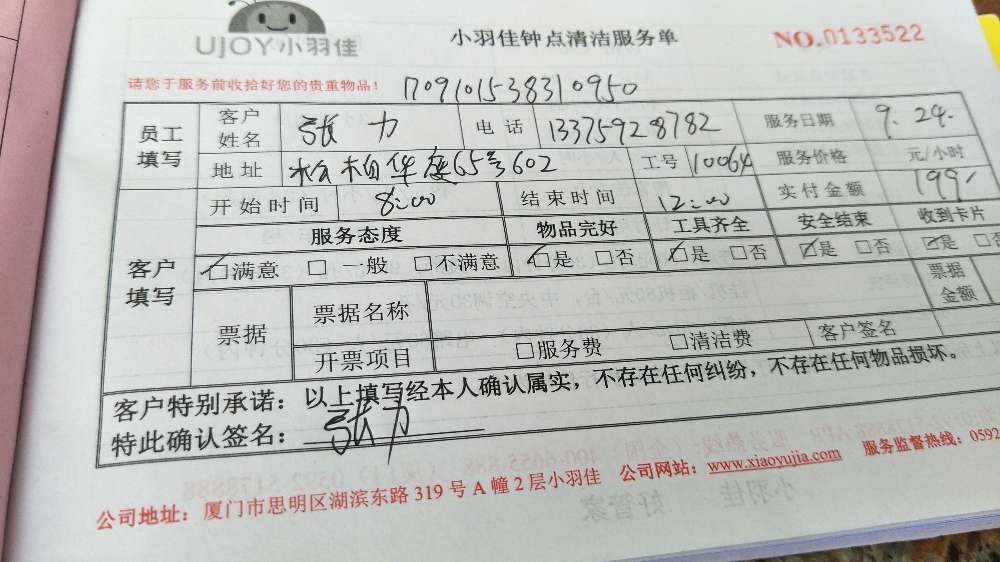 UJOY小羽佳
小羽佳钟点清洁服务单
NO.0133522
请您于服务前收拾好您的贵重物品！
1709101538310950
员工填写 客户姓名 张力 电话 13375928782 服务日期 9.24.
地址 松柏华庭65号602 工号 10064 服务价格 元/小时
开始时间 8:00 结束时间 12:00 实付金额 199
客户填写 服务态度 物品完好 工具齐全 安全结束 收到卡片
☑满意 □一般 □不满意 ☑是 □否 ☑是 □否 ☑是 □否 ☑是 □否
票据 票据名称 票据金额
开票项目 □服务费 □清洁费 客户签名
客户特别承诺：以上填写经本人确认属实，不存在任何纠纷，不存在任何物品损坏。
特此确认签名：张力
公司地址：厦门市思明区湖滨东路319号A幢2层小羽佳 公司网站：www.xiaoyujia.com 服务监督热线：0592